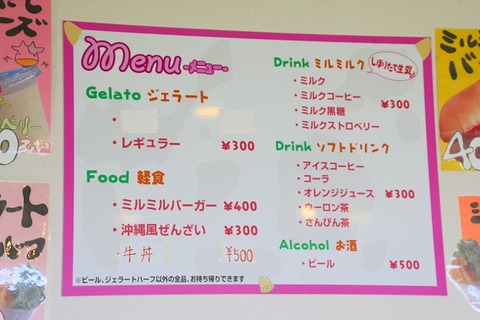 Menu -メニュー-
Gelato ジェラート
・
・レギュラー ¥300
Food 軽食
・ミルミルバーガー ¥400
・沖縄風ぜんざい ¥300
牛丼 ¥500
※ビール、ジェラートハーフ以外の全品、お持ち帰りできます
Drink ミルミルク
しぼりたて生乳
・ミルク
・ミルクコーヒー
・ミルク黒糖
・ミルクストロベリー
¥300
Drink ソフトドリンク
・アイスコーヒー
・コーラ
・オレンジジュース
・ウーロン茶
・さんぴん茶
¥300
Alcohol お酒
・ビール ¥500